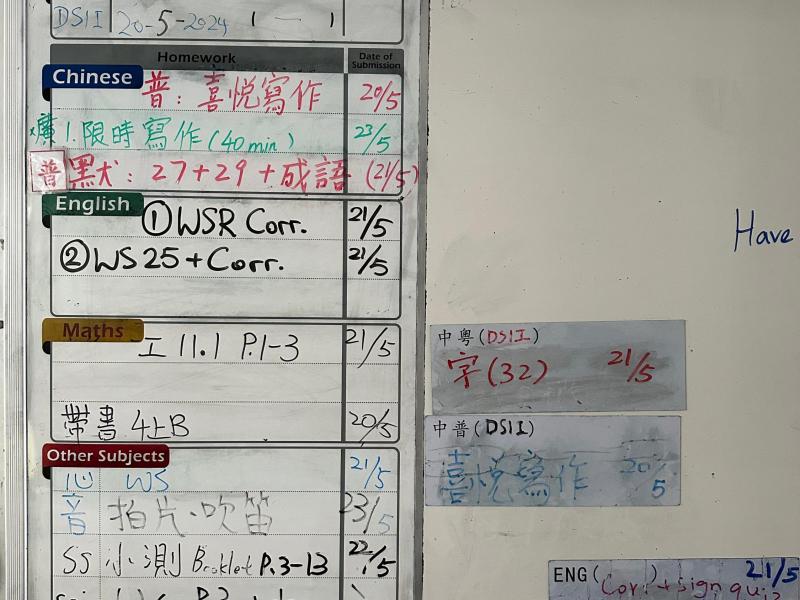 DSII 20-5-2024 1 — 1
Homework Date of Submission
Chinese 普: 喜悅寫作 20/5
廣 1. 限時寫作 (40 min) 23/5
普 默: 27+29+成語 (21/5)
English ①WSR Corr. 21/5
②WS 25 + Corr. 21/5
Maths 工 11.1 P.1-3 21/5
帶書 4上B 20/5
Other Subjects
心 WS 21/5
音 拍片、吹笛 23/5
SS 小測 Booklet P.3-13 22/5
Have
中粵(DSII)
字(32) 21/5
中普(DSII)
喜悅寫作 20/5
ENG( ) 21/5
Corr + sign quiz